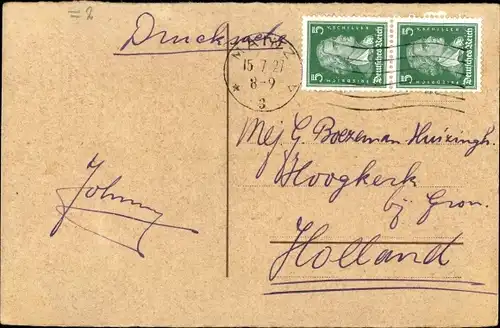 = 2
Drucksache
MAINZ
15 7 27
8-9
3
5 FR. V. SCHILLER 5
Deutsches Reich
5 FR. V. SCHILLER 5
Deutsches Reich
Mej G. Boezeman Huizingh.
Hoogkerk
bij Gron.
Holland
Johnny